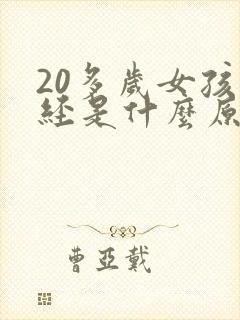 20多歲女孩
經是什麼原
曹亞戴